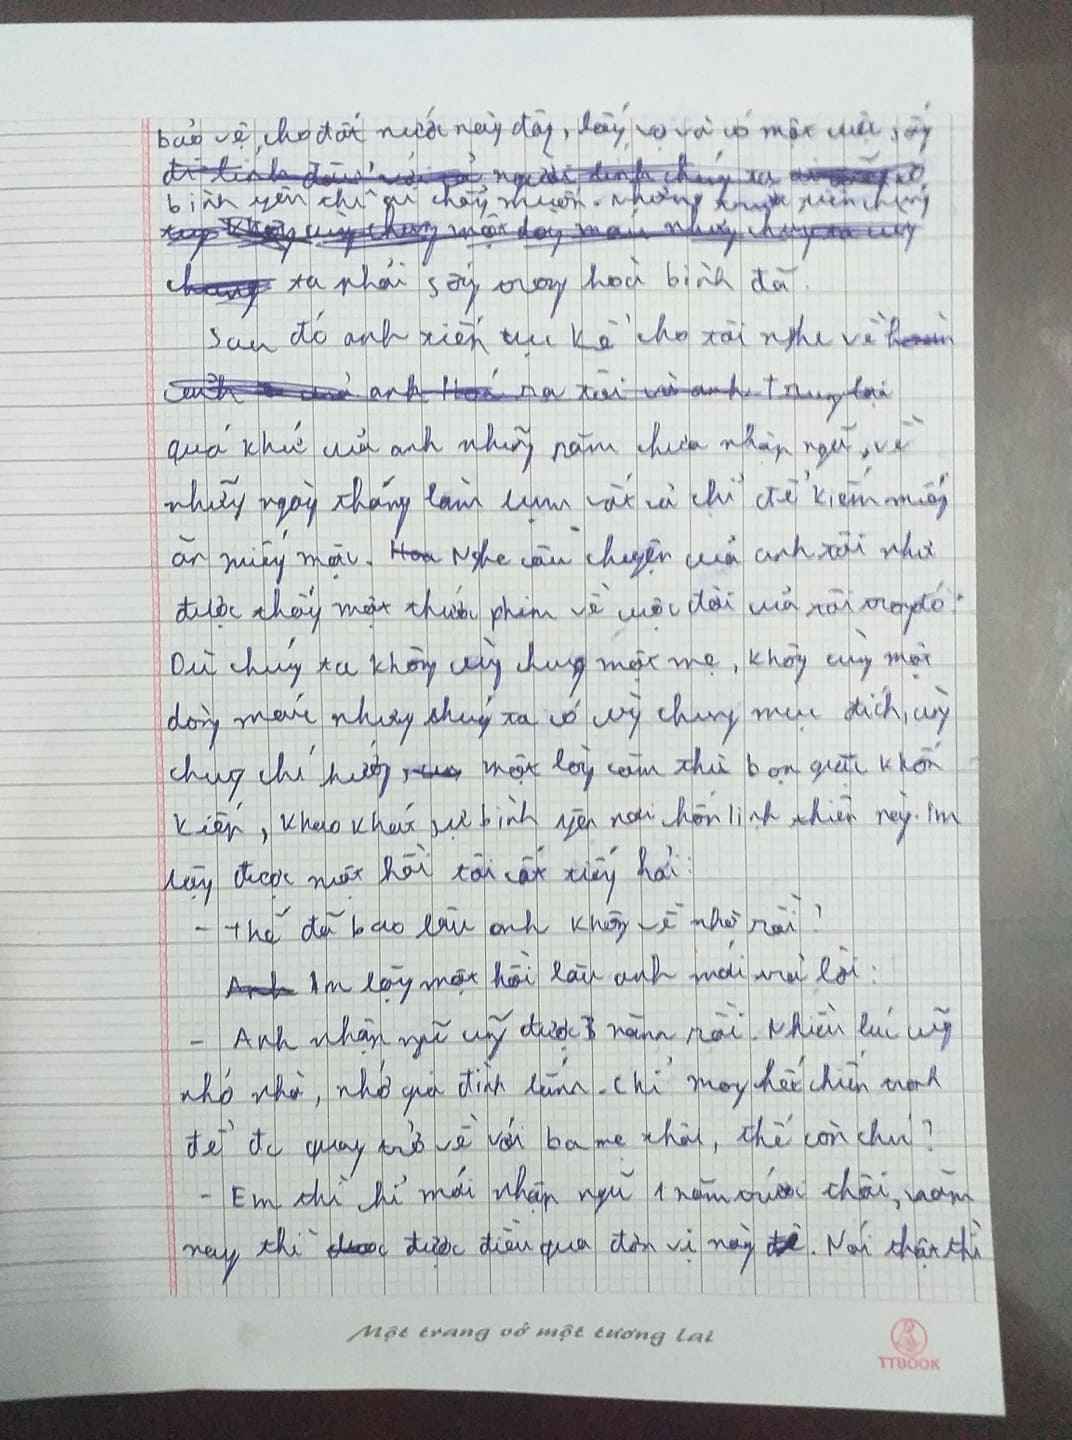 bảo vệ cho đất nước này đây, lấy vợ và có một cuộc sống
bình yên thì ai chẳng muốn. Nhưng trước tiên chúng
ta phải sống trong hoà bình đã.
Sau đó anh tiếp tục kể cho tôi nghe về
quá khứ của anh những năm chưa nhập ngũ, về
những ngày tháng làm lụng vất vả chỉ để kiếm miếng
ăn miếng mặc. Nghe câu chuyện của anh tôi như
được thấy một thước phim về cuộc đời của tôi trong đó.
Dù chúng ta không cùng chung một mẹ, không cùng một
dòng máu nhưng chúng ta có cùng chung mục đích, cùng
chung chí hướng, một lòng căm thù bọn giặc khốn
kiếp, khao khát sự bình yên nơi chốn linh thiên này. Im
lặng được một hồi tôi cất tiếng hỏi:
- Thế đã bao lâu anh không về nhà rồi?
Im lặng một hồi lâu anh mới trả lời:
- Anh nhập ngũ cũng được 3 năm rồi. Nhiều lúc cũng
nhớ nhà, nhớ gia đình lắm. Chỉ mong hết chiến tranh
để đc quay trở về với ba mẹ thôi, thế còn chú?
- Em thì chỉ mới nhập ngũ 1 năm trước thôi, năm
nay thì được điều qua đơn vị này. Nói thật thì
Một trang vở một tương lai
TTBOOK